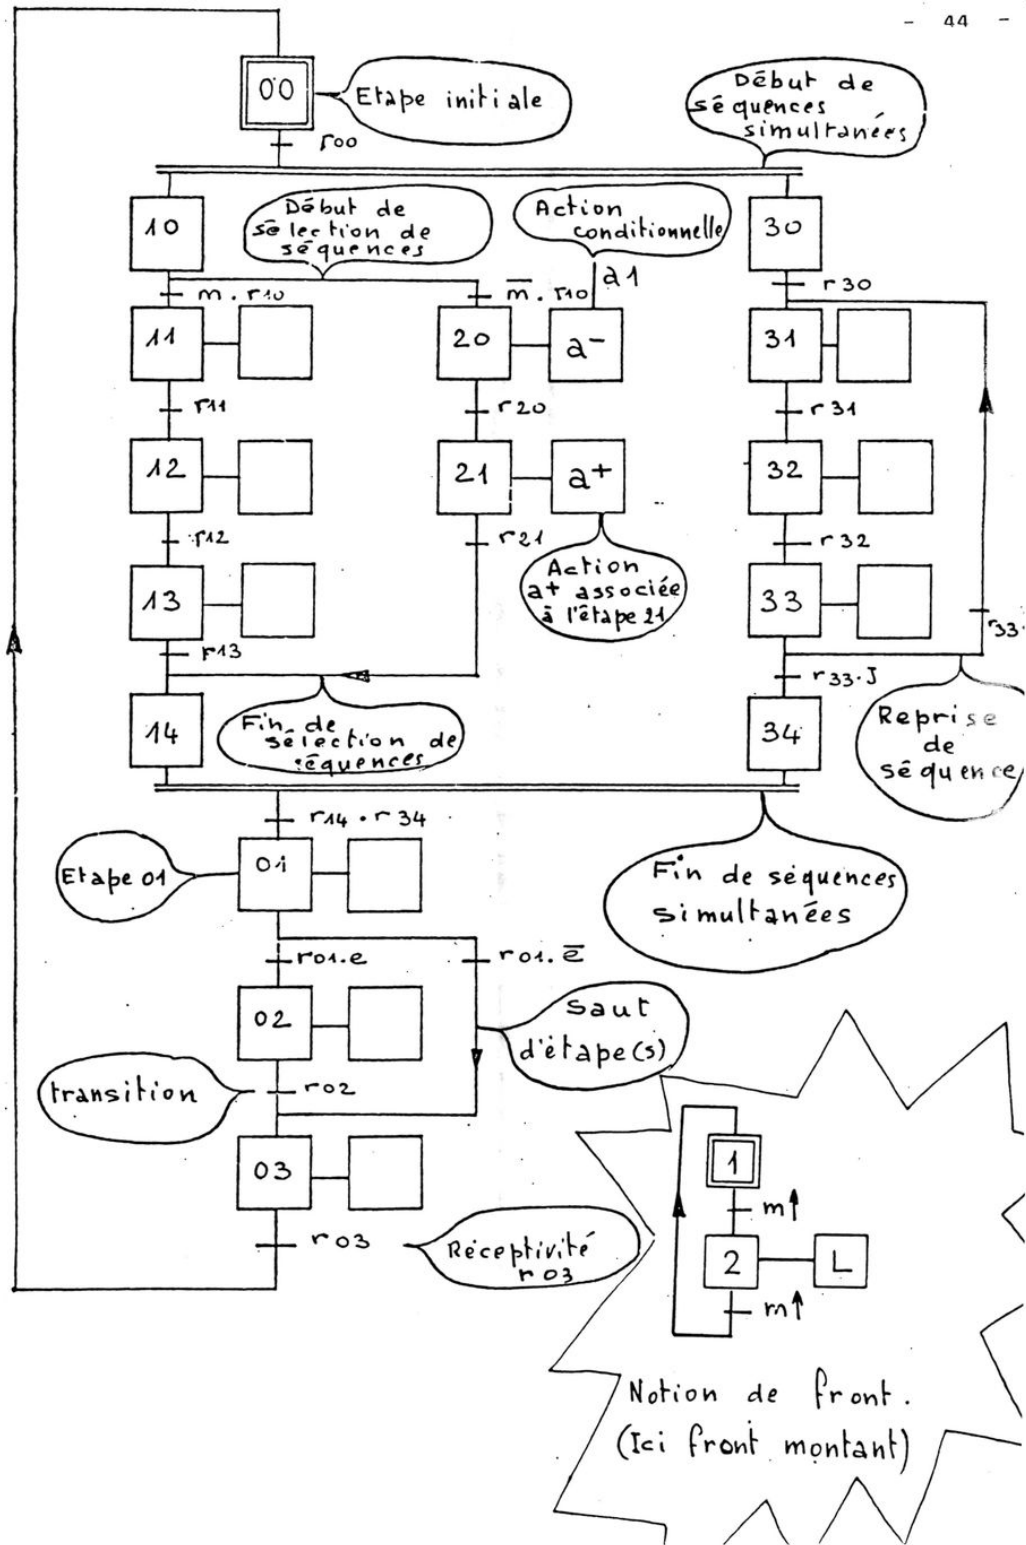 - 44 -
00
Etape initiale
Début de
séquences
simultanées
r00
10
Début de
sélection de
séquences
Action
conditionnelle
30
a1
m . r10
m̅ . r10
r30
11
20
a-
31
r11
r20
r31
12
21
a+
32
r12
r21
r32
Action
a+ associée
à l'étape 21
13
33
r33.
r13
r33.J
14
Fin de
sélection de
séquences
34
Reprise
de
séquence
r14 . r34
01
Etape 01
Fin de séquences
simultanées
r01.e
r01.e̅
02
Saut
d'étape(s)
transition
r02
03
r03
Réceptivité
r03
1
m↑
2
L
m↑
Notion de front.
(Ici front montant)